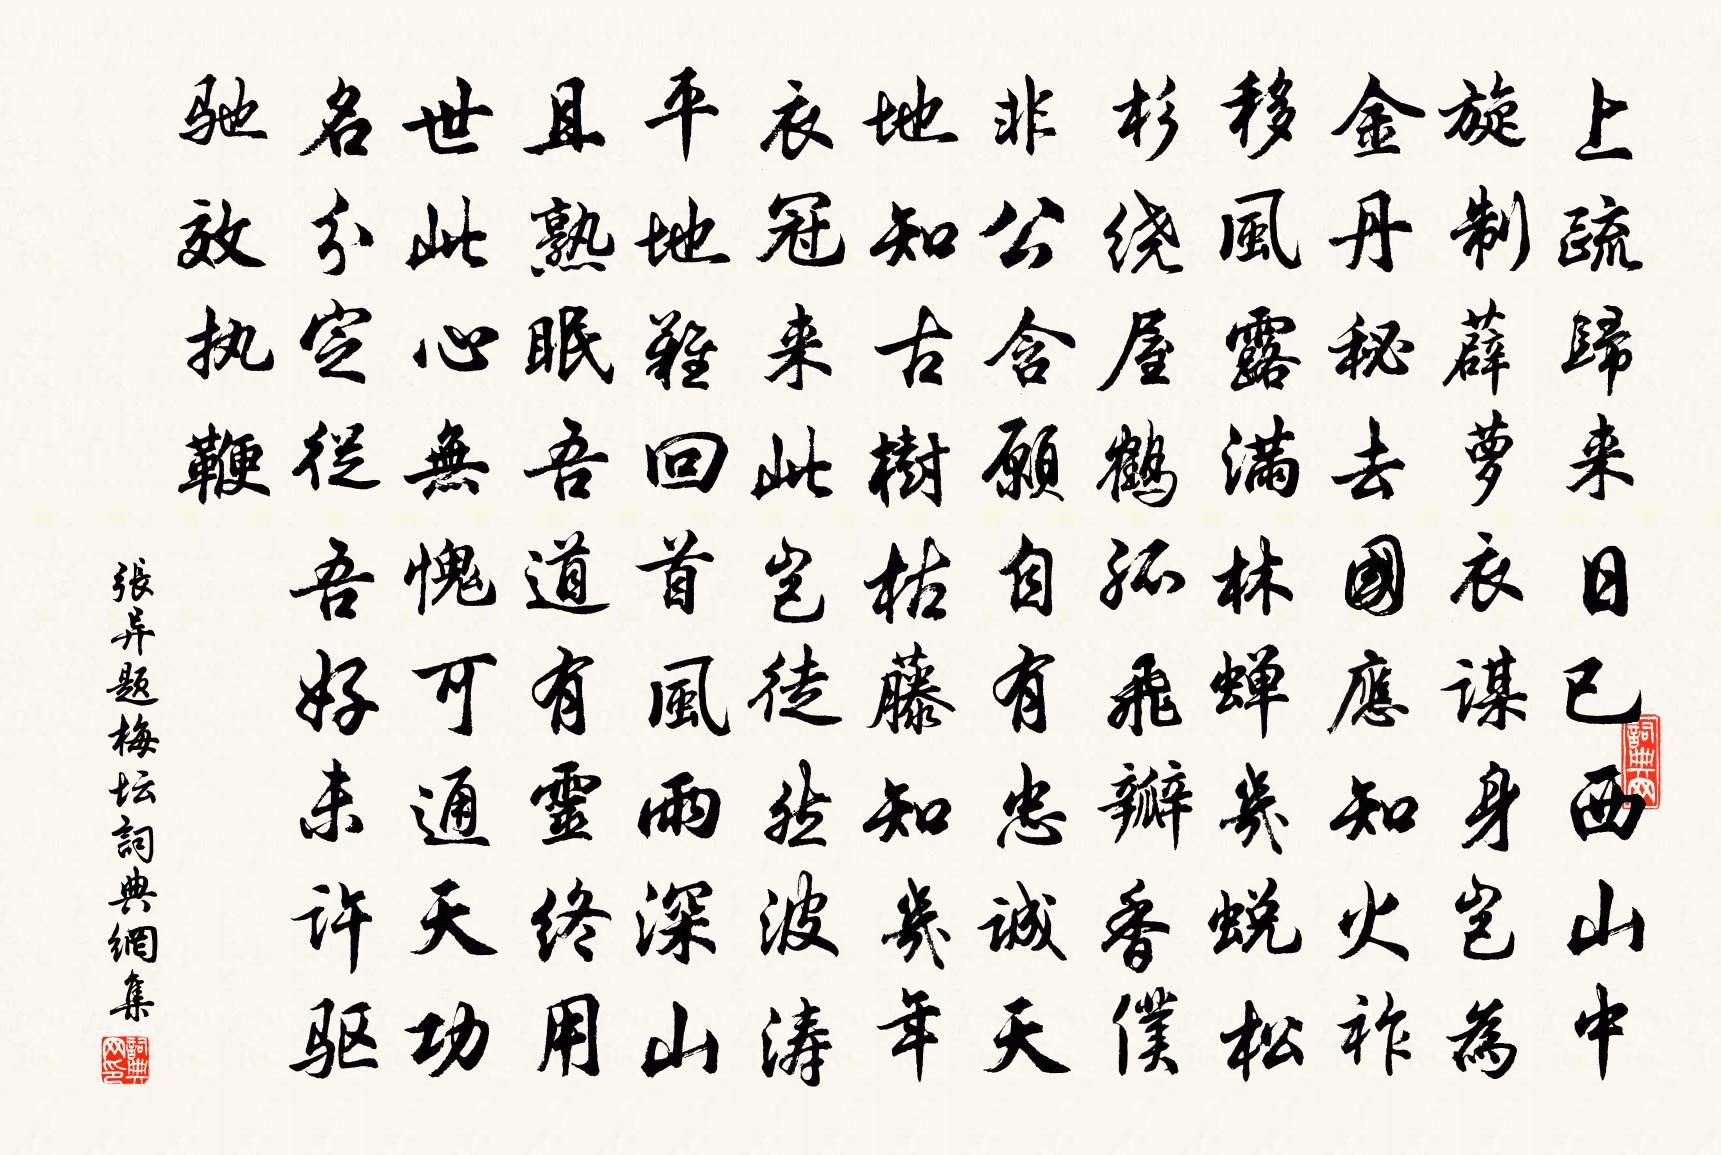 上疏歸来日已西山中
旋制薜萝衣谋身岂為
金丹秘去國應知火祚
移風露滿林蝉幾蜕松
杉绕屋鶴孤飛瓣香僕
非公含願自有忠诚天
地知古樹枯藤知幾年
衣冠来此岂徒然波涛
平地難回首風雨深山
且熟眠吾道有靈终用
世此心無愧可通天功
名分定從吾好未许驱
驰效执鞭
張昇题梅坛詞典網集
詞典网
詞典网印